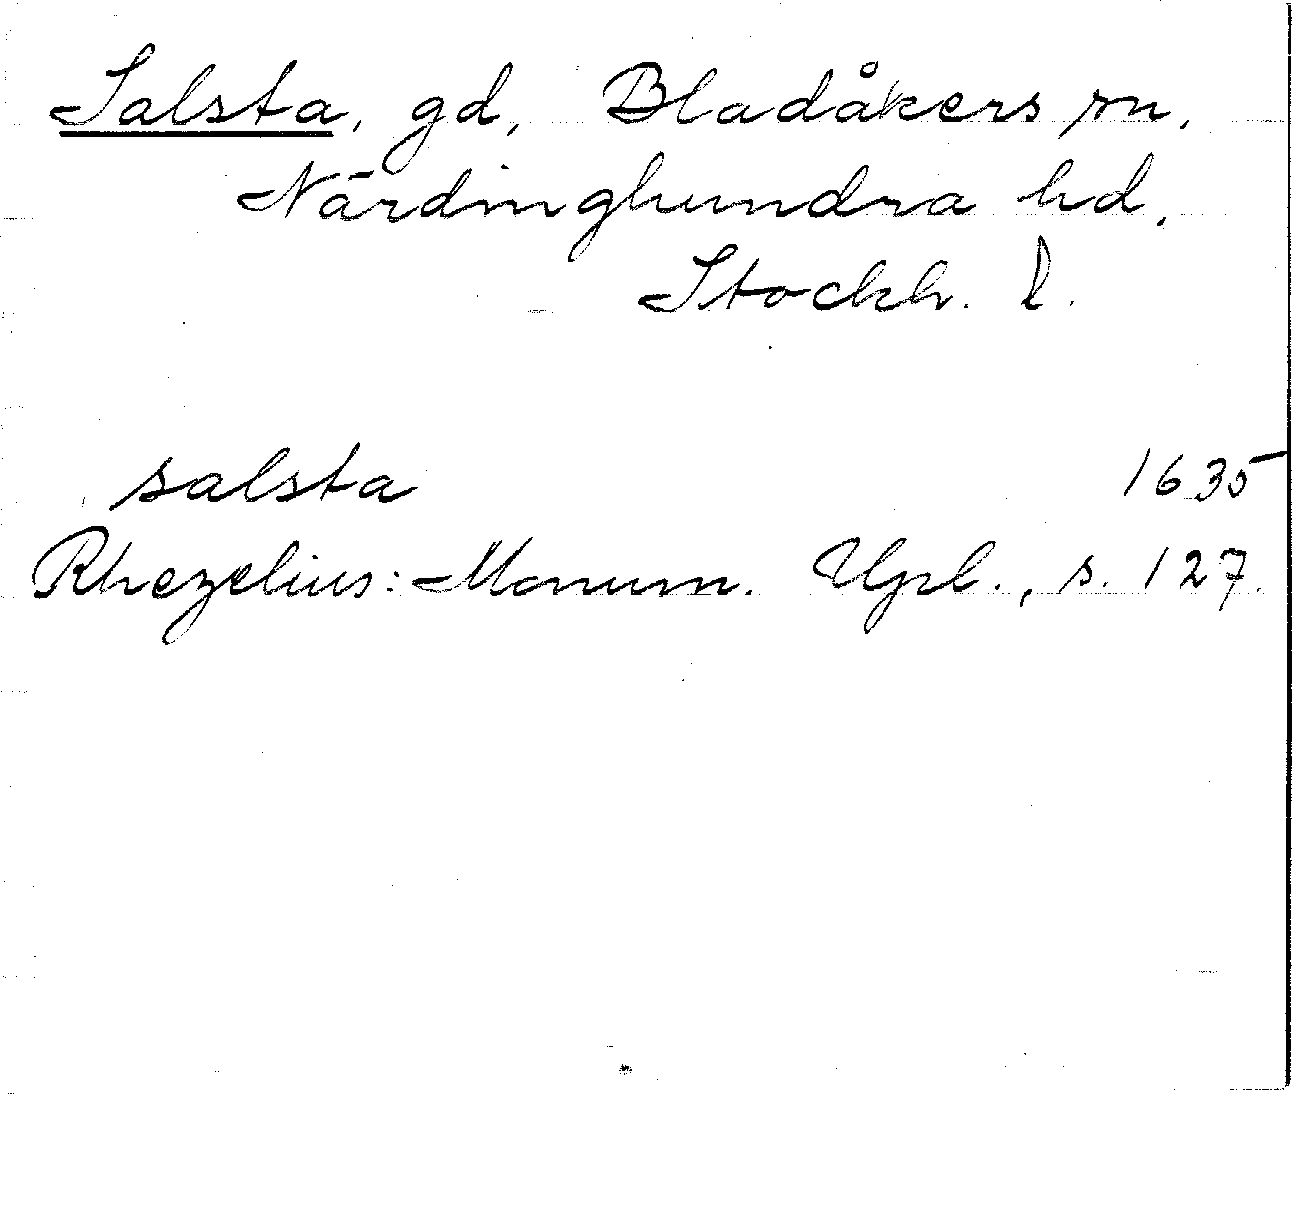 Salsta, gd, Bladåkers sn,
Närdinghundra hd,
Stockh. l.
salsta 1635
Rhezelius: Monum. Upl., s. 127.